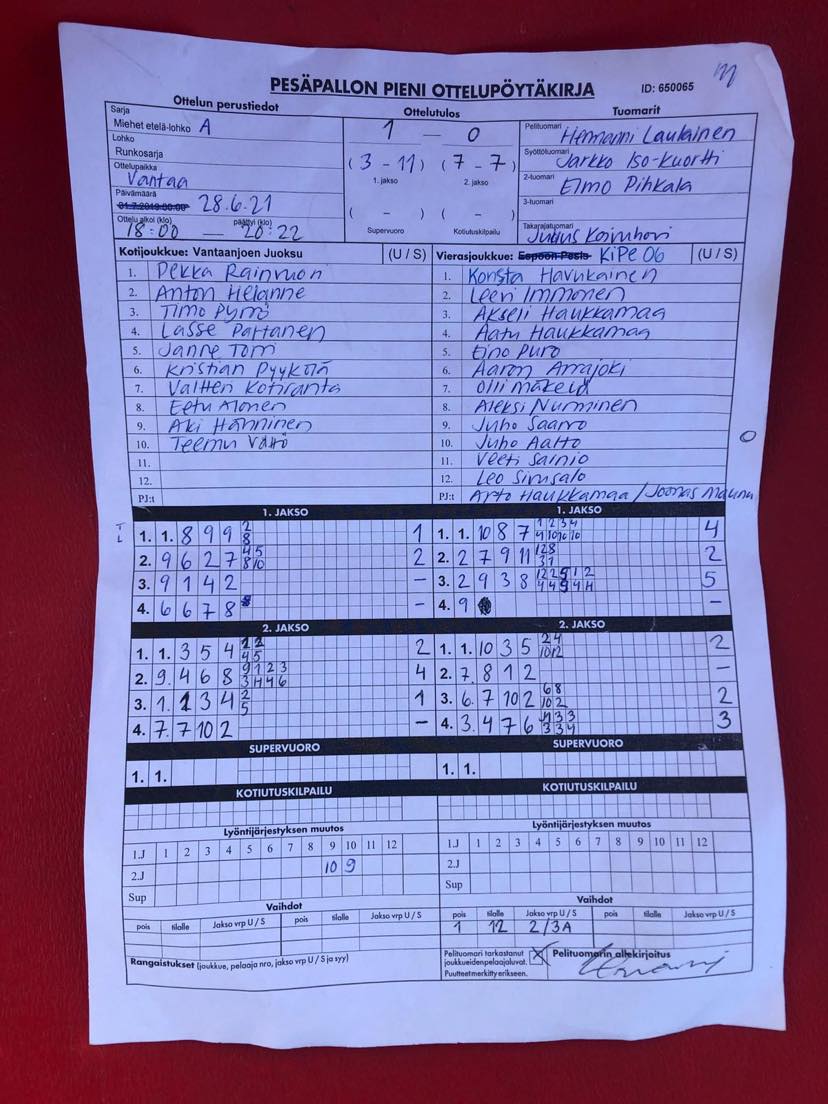 PESÄPALLON PIENI OTTELUPÖYTÄKIRJA ID: 650065
Ottelun perustiedot Ottelutulos Tuomarit
Sarja
Miehet etelä-lohko A
Lohko
Runkosarja
Ottelupaikka
Vantaa
Päivämäärä
28.6.21
Ottelu alkoi (klo) päättyi (klo)
18:00 — 20:22
1 — 0
(3 - 11) (7 - 7)
1. jakso 2. jakso
( - ) ( - )
Supervuoro Kotiutuskilpailu
Pelituomari Hemanni Laukainen
Syöttötuomari Jarkko Iso-Kuortti
2-tuomari Elmo Pihkala
3-tuomari
Takarajatuomari
Kotijoukkue: Vantaanjoen Juoksu (U / S) Vierasjoukkue: Espoon Pesis KiPe 06 (U / S)
1. Pekka Rainvuori 1. Konsta Havukainen
2. Anton Helanne 2. Leevi Immonen
3. Timo Pyrrö 3. Akseli Haukkamaa
4. Lasse Partanen 4. Aatu Haukkamaa
5. Janne Torri 5. Eino Puro
6. Kristian Pyykölä 6. Aaron Arrajoki
7. Valtteri Kotiranta 7. Olli Mäkelä
8. Eetu 8. Aleksi Nurminen
9. Aki Hänninen 9. Juho Saarro
10. Teemu 10. Juho Aalto
11. 11. Veeti Sainio
12. 12. Leo Sirusalo
PJ:t PJ:t Arto Haukkamaa / Joonas
1. JAKSO 1. JAKSO
1. 1. 8 9 9 2 8 1 1. 1. 10 8 7 1 2 3 4 4 10 10 10 4
2. 9 6 2 7 4 5 8 10 2 2. 2 7 9 11 1 2 8 3 1 2
3. 9 1 4 2 - 3. 2 9 3 8 1 2 2 5 1 2 4 4 5 4 4 5
4. 6 6 7 8 - 4. 9 -
2. JAKSO 2. JAKSO
1. 1. 3 5 4 1 2 4 5 2 1. 1. 10 3 5 2 4 10 12 2
2. 9. 4 6 8 9 1 2 3 3 4 4 6 4 2. 7. 8 1 2 -
3. 1. 1 3 4 2 5 1 3. 6. 7 10 2 6 8 10 2 2
4. 7. 7 10 2 - 4. 3. 4 7 6 3 3 3 3 4 3
SUPERVUORO SUPERVUORO
1. 1. 1. 1.
KOTIUTUSKILPAILU KOTIUTUSKILPAILU
Lyöntijärjestyksen muutos Lyöntijärjestyksen muutos
1.J 1 2 3 4 5 6 7 8 9 10 11 12 1.J 1 2 3 4 5 6 7 8 9 10 11 12
2.J 10 9 2.J
Sup Sup
Vaihdot Vaihdot
pois tilalle Jakso vrp U / S pois tilalle Jakso vrp U / S pois tilalle Jakso vrp U / S pois tilalle Jakso vrp U / S
1 12 2/3A
Rangaistukset (joukkue, pelaaja nro, jakso vrp U / S ja syy)
Pelituomari tarkastanut
joukkueidenpelaajaluvat. X Pelituomarin allekirjoitus
Puutteetmerkitty erikseen.